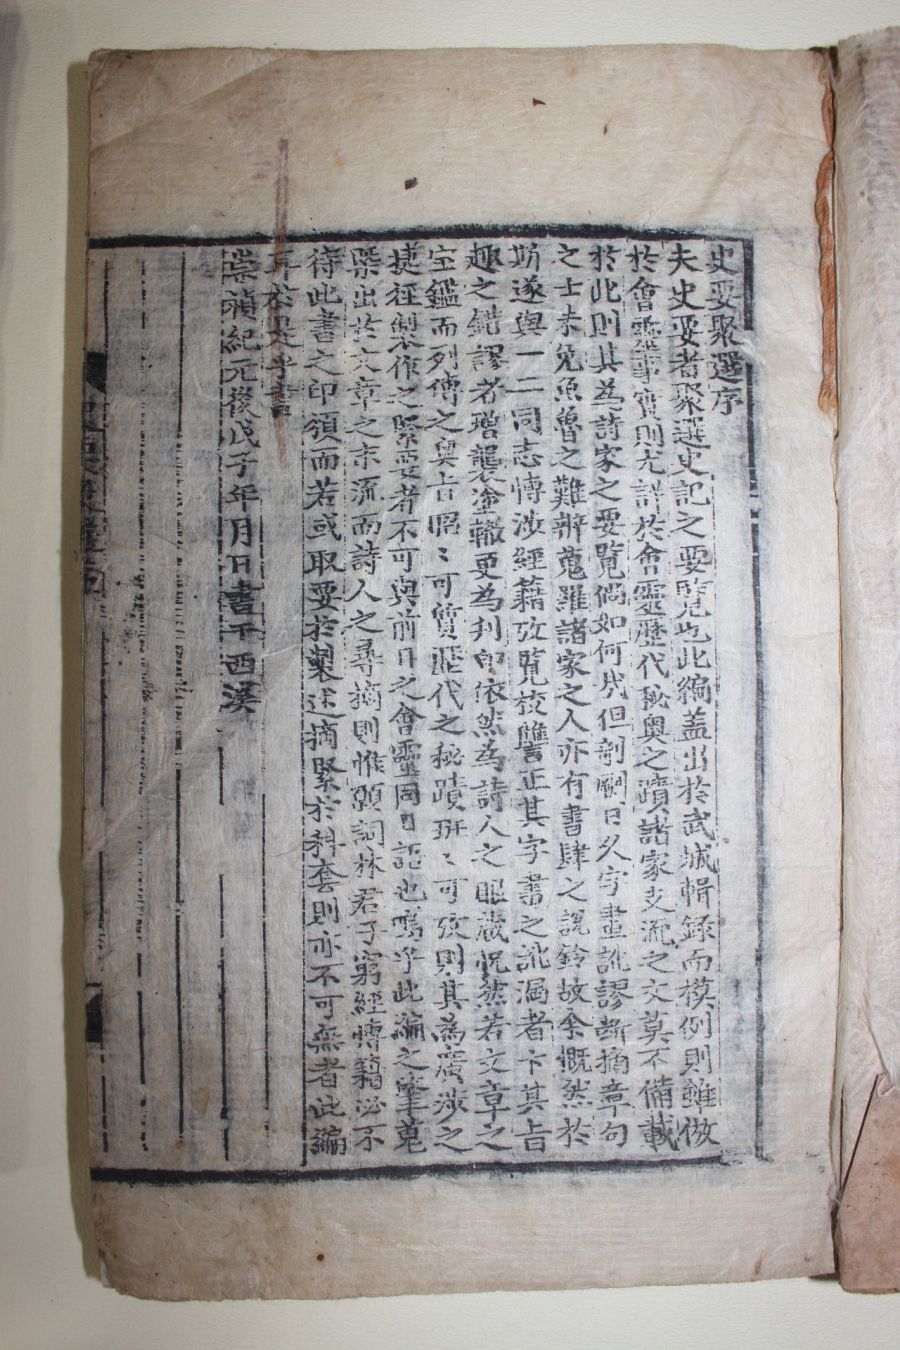 史要聚選序
夫史要者聚選史記之要覽也此編盖出於武城輯錄而模例則雖倣
於會靈事實則尤詳於會靈歷代秘奧之蹟諸家支流之文莫不備載
於此則其爲詩家之要覽倘如何哉但剞劂日久字畫訛謬斷摘章句
之士未免魚魯之難辨蒐羅諸家之人亦有書肆之說鈴故余慨然於
斯遂與一二同志愽涉經籍攷覽校讐正其字畫之訛漏者卞其旨
趣之錯謬者增襲塗轍更爲刋印依然爲詩人之眼藏怳然若文章之
宝鑑而列傳之奧旨昭〻可質歷代之秘蹟班〻可攷則其爲廣涉之
捷徑製作之緊要者不可與前日之會靈同日語也嗚乎此編之筆蒐
槩出於文章之末流而詩人之尋摘則惟願詞林君子窮經愽籍必不
待此書之印領而若或取要於製述摘緊於科套則亦不可無者此編
耳於是乎書
崇禎紀元後戊子年月日書于西溪